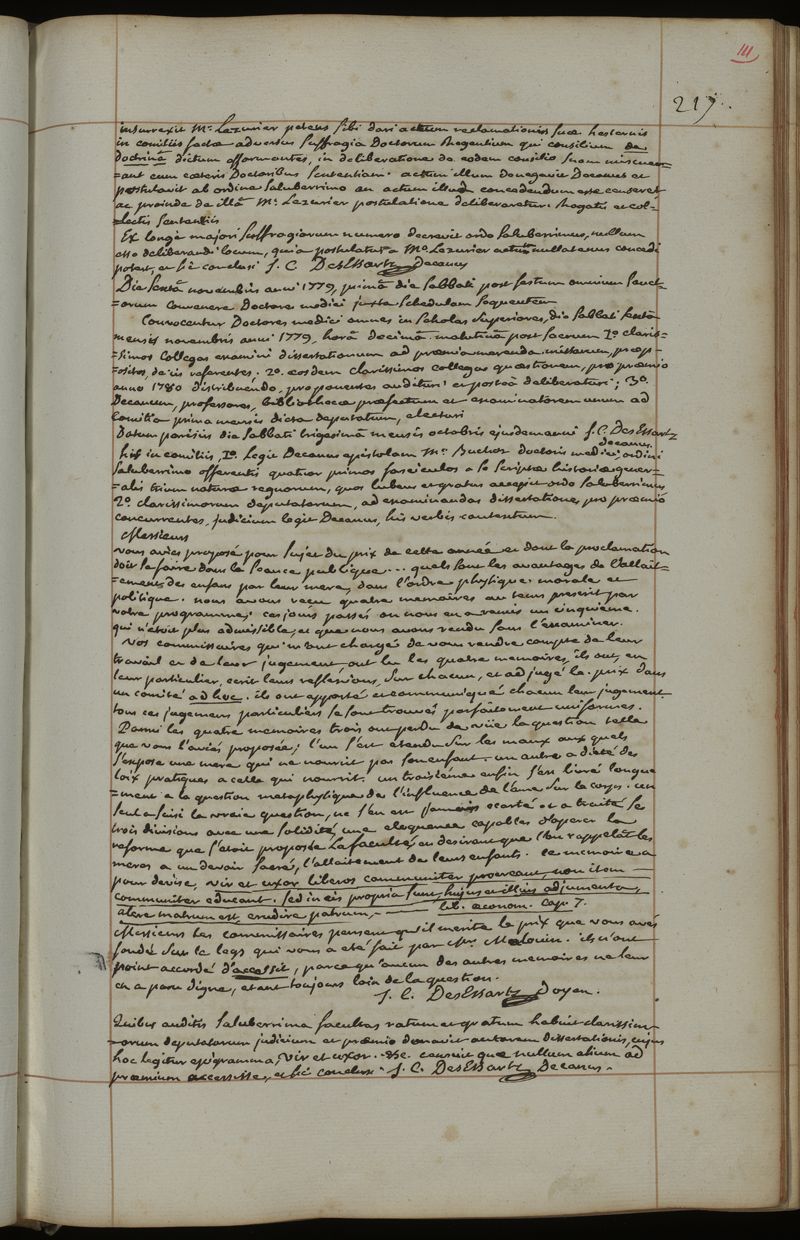 111
217.
insurrexit Mr. Lezurier petens sibi dari actum reclamationis suæ hesternis
in comitiis factæ adversus suffragia Doctorum Regentium qui consilium de
doctrinâ dictum efformantes, in deliberatione de eodem consilio suam miscuer=
=ant cum cæteris Doctoribus sententiam. actum illum denegavit Decanus et
postulavit ab ordine saluberrimo an actum illud concedendum esse censeret
ac proinde de illâ Mi. Lezurier postulatione deliberaretur. Rogatis et col=
=lectis sententiis
Ex longè majori suffragiorum numero decrevit ordo saluberrimus, nullum
esse deliberandi locum, quia postulatus a Mo. Lezurier actus nullatenus concedi
potest, et sic conclusi J. C. DesEssartz Decanus
Die sextâ novembris anni 1779, primâ die sabbati post festum omnium sanct=
=orum convenere Doctores medici juxta schedulam sequentem
Convocentur Doctores medici omnes in scholas superiores, die sabbati sextâ
mensis novembris anni 1779, horâ decimâ matutinâ post sacrum 1o. claris=
=simos collegas examini dissertationum ad præmia merenda missarum, præp=
=ositos, de iis referentes. 2o. eosdem clarissimos collegas quæstionem, pro præmio
anno 1780 distribuendo, proponentes audituri et postea deliberaturi; 3o.
Decanum, professores, bibliothecæ præfectum et examinatorem unum ad
comitia prima mensis dicta deputatum, electuri
Datum parisiis die sabbati trigesimâ mensis octobris ejusdem anni J. C. DesEssartz
Decanus.
his in comitiis, 1o. Legit Decanus epistolam Mi. Buchoz doctoris medici, ordini
saluberrimo offerentis quatuor primos fasciculos a se scriptæ historiæ gener=
=alis trium naturæ regnorum, quos lubens et gratus accepit ordo saluberrimus
2o. clarissimorum deputatorum, ad examinandas dissertationes pro præmio
concurrentes, judicium legit Decanus, his verbis contentum.
Messieurs
vous aviés proposé pour sujet du prix de cette année et dont la proclamation
doit se faire dans la séance publique... quels sont les avantages de l'allait=
=ement des enfans par leur mere, dans l'ordre physique, morale et
politique. nous avons reçu quatre mémoires au tems prescrit par
votre programme; ces jours passés on nous en a remis un cinquieme.
qui n'etoit plus admissible, et que nous avons rendu sans l'examiner.
Vos commissaires qui m'ont chargé de vous rendre compte de leur
travail et de leur jugement, ont lu les quatre memoires, ils ont, en
leur particulier, ecrit leurs reflexions, sur chacun, et adjugé le prix dans
un comité ad hoc. ils ont apporté et communiqué chacun leur jugement
tous ces jugemens particuliers se sont trouvés parfaitement uniformes.
Parmi les quatre memoires trois ont perdu de vüe la question telle
que vous l'aviés proposée; l'un s'est etendu sur les maux aux quels
s'expose une mere qui ne nourrit pas son enfant. un autre a dicté des
loix pratiques a celle qui nourrit. un troisième enfin s'est livré longue
=ment a la question metaphysique de l'influence de l'ame sur le corps. un
seul a saisi la vraie question, ne s'en est jamais ecarté et a traité ses
trois divisions avec une solidité, une eloquence capables d'operer la
reforme que s'étoit proposée La faculté, en desirant que l'on rappelât les
meres a un devoir sacré, l'allaitement de leurs enfants. ce memoire a
pour devise, vir et uxor liberos communiter procreant, non item —
communiter educant. sed in eis propria sunt hujus et illius adjumenta,
alere matrum est, erudire patrum. — lib. œconom. Cap. 7.
Messieurs les commissaires pensent qu'il merite le prix que vous avés
fondé sur le legs qui vous a eté fait par Mr. Malouin. ils n'ont
point accordé d'accessit, parce qu'aucun des autres memoires ne leur
en a paru digne, etant toujours loin de la question.
J. C. DesEssartz Doyen.
Quibus auditis saluberrima facultas ratum et gratum habuit clarissim-
-orum deputatorum judicium et præmio donavit autorem dissertationis, cujus
hoc legitur epigramma, vir et uxor. &c. censuit que nullum alium ad
præmium accessisse, et sic conclusi. J. C. DesEssartz Decanus.